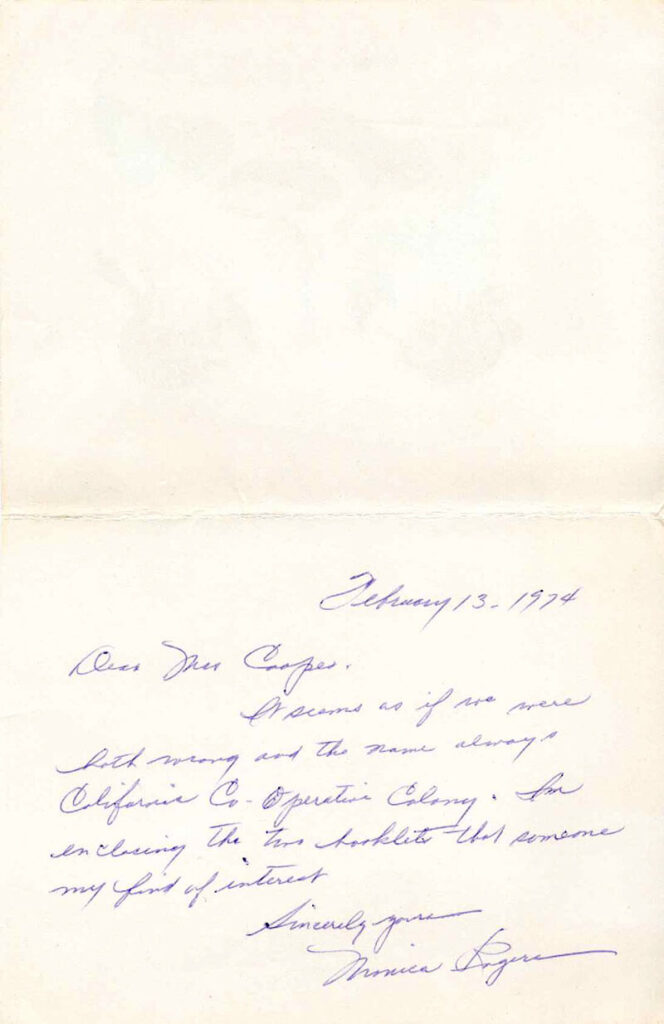 February 13. 1974
Dear Mrs Cooper.
It seems as if we were
both wrong and the name always
California Co-Operative Colony. Im
enclosing the two booklets that someone
my find of interest
Sincerely yours
Monica Rogers